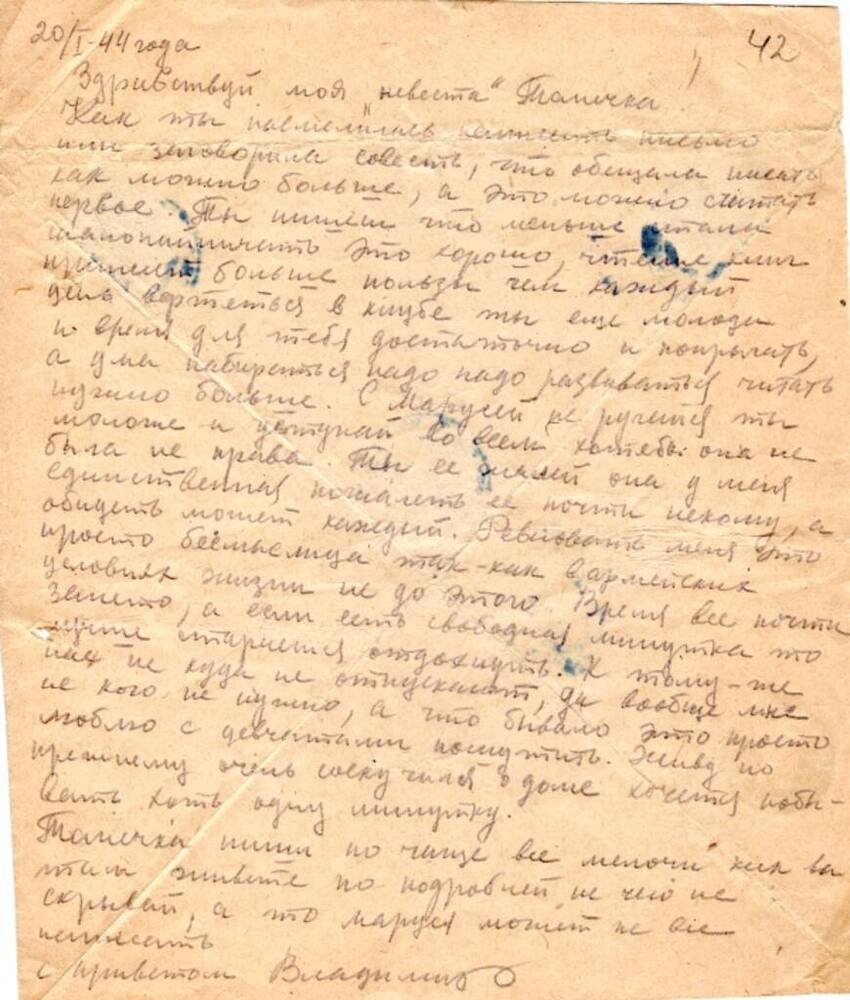 20/I-44 года
42
Здравствуй моя "невеста" Томечка!
Как ты письмо
или заговорила совесть, что обещала писать
как можно больше, а это можно считать
первое. Ты пишеш что меньше стала
это хорошо, чтение книг
принесет больше пользы чем каждый
день вертеться в клубе ты еще молода
и время для тебя достаточно и попрыгать,
а ума набираться надо надо развиваться читать
нужно больше. С Марусей не ругайся ты
моложе и уступай во всем хотебы она не
была не права. Ты ее жалей она у меня
единственная пожалеть ее почти некому, а
обидеть может каждый. Ревновать меня это
просто бесмыслица так-как в армейских
условиях жизни не до этого. Время все почти
зането, а если есть свободная минутка то
лучше стараешся отдохнуть. К тому-же
нас не куда не отпускают, да вообще мне
не кого не нужно, а что бывало это просто
люблю с девчатами пошутить. Живу по
прежнему очень соскучился в доме хочется побы-
вать хоть одну минутку.
Томечка пиши по чаще все мелочи как вы
там живете по подробней не чего не
скрывай, а то маруся может не все
написать
с приветом Владимир